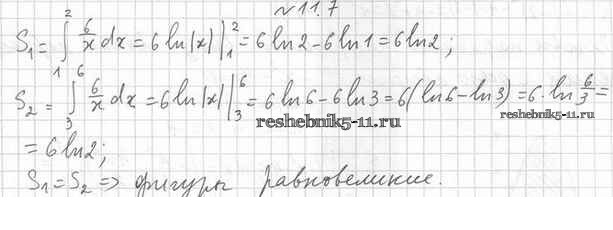 №11.7
S₁ = ∫₁² 6/x dx = 6 ln|x| |₁² = 6 ln2 - 6 ln1 = 6 ln2;
S₂ = ∫₃⁶ 6/x dx = 6 ln|x| |₃⁶ = 6 ln6 - 6 ln3 = 6(ln6 - ln3) = 6·ln 6/3 =
reshebnik5-11.ru
reshebnik5-11.ru
= 6 ln2;
S₁ = S₂ => фигуры равновеликие.